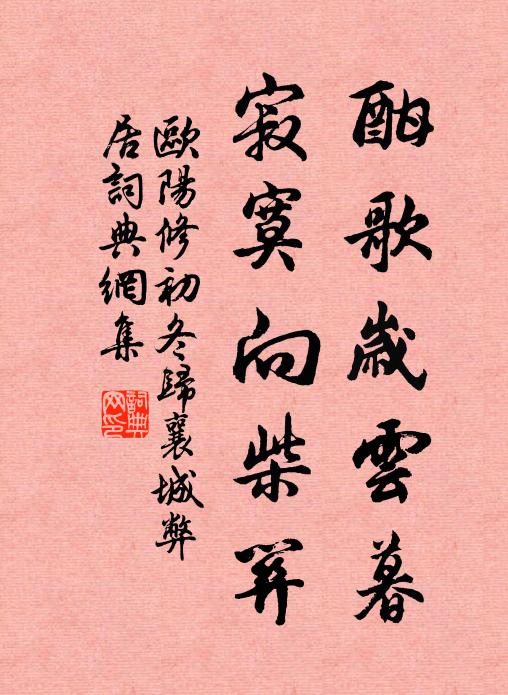 酣歌歲雲暮
寂寞向柴荆
歐陽修初冬歸襄城弊
居詞典網集
詞典
网印